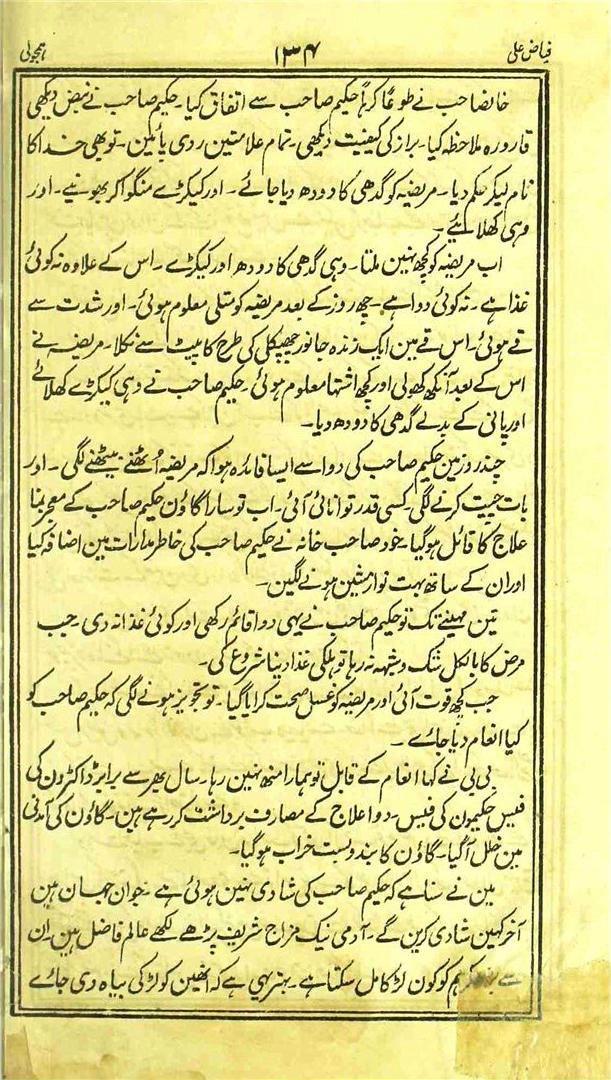 فیاض علی ۱۳۴ ہمجولی
خانصاحب نے طوعًا کرہاً حکیم صاحب سے اتفاق کیا۔ حکیم صاحب نے نبض دیکھی
قارورہ ملاحظہ کیا۔ براز کی کیفیت دیکھی۔ تمام علامتین ردی پائین۔ تو بھی خدا کا
نام لیکر حکم دیا۔ مریضہ کو گدھی کا دودھ دیا جائے۔ اور کیکڑے منگوا کر بھونیے۔ اور
وہی کھلائیے۔
اب مریضہ کو کچھ نہین ملتا۔ وہی گدھی کا دودھ اور کیکڑے۔ اس کے علاوہ نہ کوئی
غذا ہے۔ نہ کوئی دوا ہے۔ چھ روز کے بعد مریضہ کو متلی معلوم ہوئی۔ اور شدت سے
قے ہوئی۔ اس قے مین ایک زندہ جانور چھپکلی کی طرح کا پیٹ سے نکلا۔ مریضہ نے
اس کے بعد آنکھ کھولی اور کچھ اشتہا معلوم ہوئی۔ حکیم صاحب نے وہی کیکڑے کھلائے
اور پانی کے بدلے گدھی کا دودھ دیا۔
چند روز مین حکیم صاحب کی دوا سے ایسا فائدہ ہوا کہ مریضہ اُٹھنے بیٹھنے لگی۔ اور
بات چیت کرنے لگی۔ کسی قدر توانائی آئی۔ اب تو سارا گاؤن حکیم صاحب کے معجز نما
علاج کا قائل ہو گیا۔ خود صاحب خانہ نے حکیم صاحب کی خاطر مدارات مین اضافہ کیا
اور ان کے ساتھ بہت نوازشین ہونے لگین۔
تین مہینے تک تو حکیم صاحب نے یہی دوا قائم رکھی اور کوئی غذا نہ دی۔ جب
مرض کا بالکل شک و شبہہ نہ رہا تو ہلکی غذا دینا شروع کی۔
جب کچھ قوت آئی اور مریضہ کو غسل صحت کرایا گیا۔ تو تجویز ہونے لگی کہ حکیم صاحب کو
کیا انعام دیا جائے۔
بی بی نے کہا انعام کے قابل تو ہمارا منھ نہین رہا۔ سال بھر سے برابر ڈاکٹرون کی
فیس حکیمون کی فیس۔ دوا علاج کے مصارف برداشت کر رہے ہین۔ گاؤن کی آمدنی
مین خلل آگیا۔ گاؤن کا بندوبست خراب ہو گیا۔
مین نے سنا ہے کہ حکیم صاحب کی شادی نہین ہوئی ہے۔ جوان جہان ہین
آخر کہین شادی کرین گے۔ آدمی نیک مزاج شریف پڑھے لکھے عالم فاضل ہین۔ ان
سے ہم کو کون لڑکا مل سکتا ہے۔ بہتر یہی ہے کہ انھین کو لڑکی بیاہ دی جائے